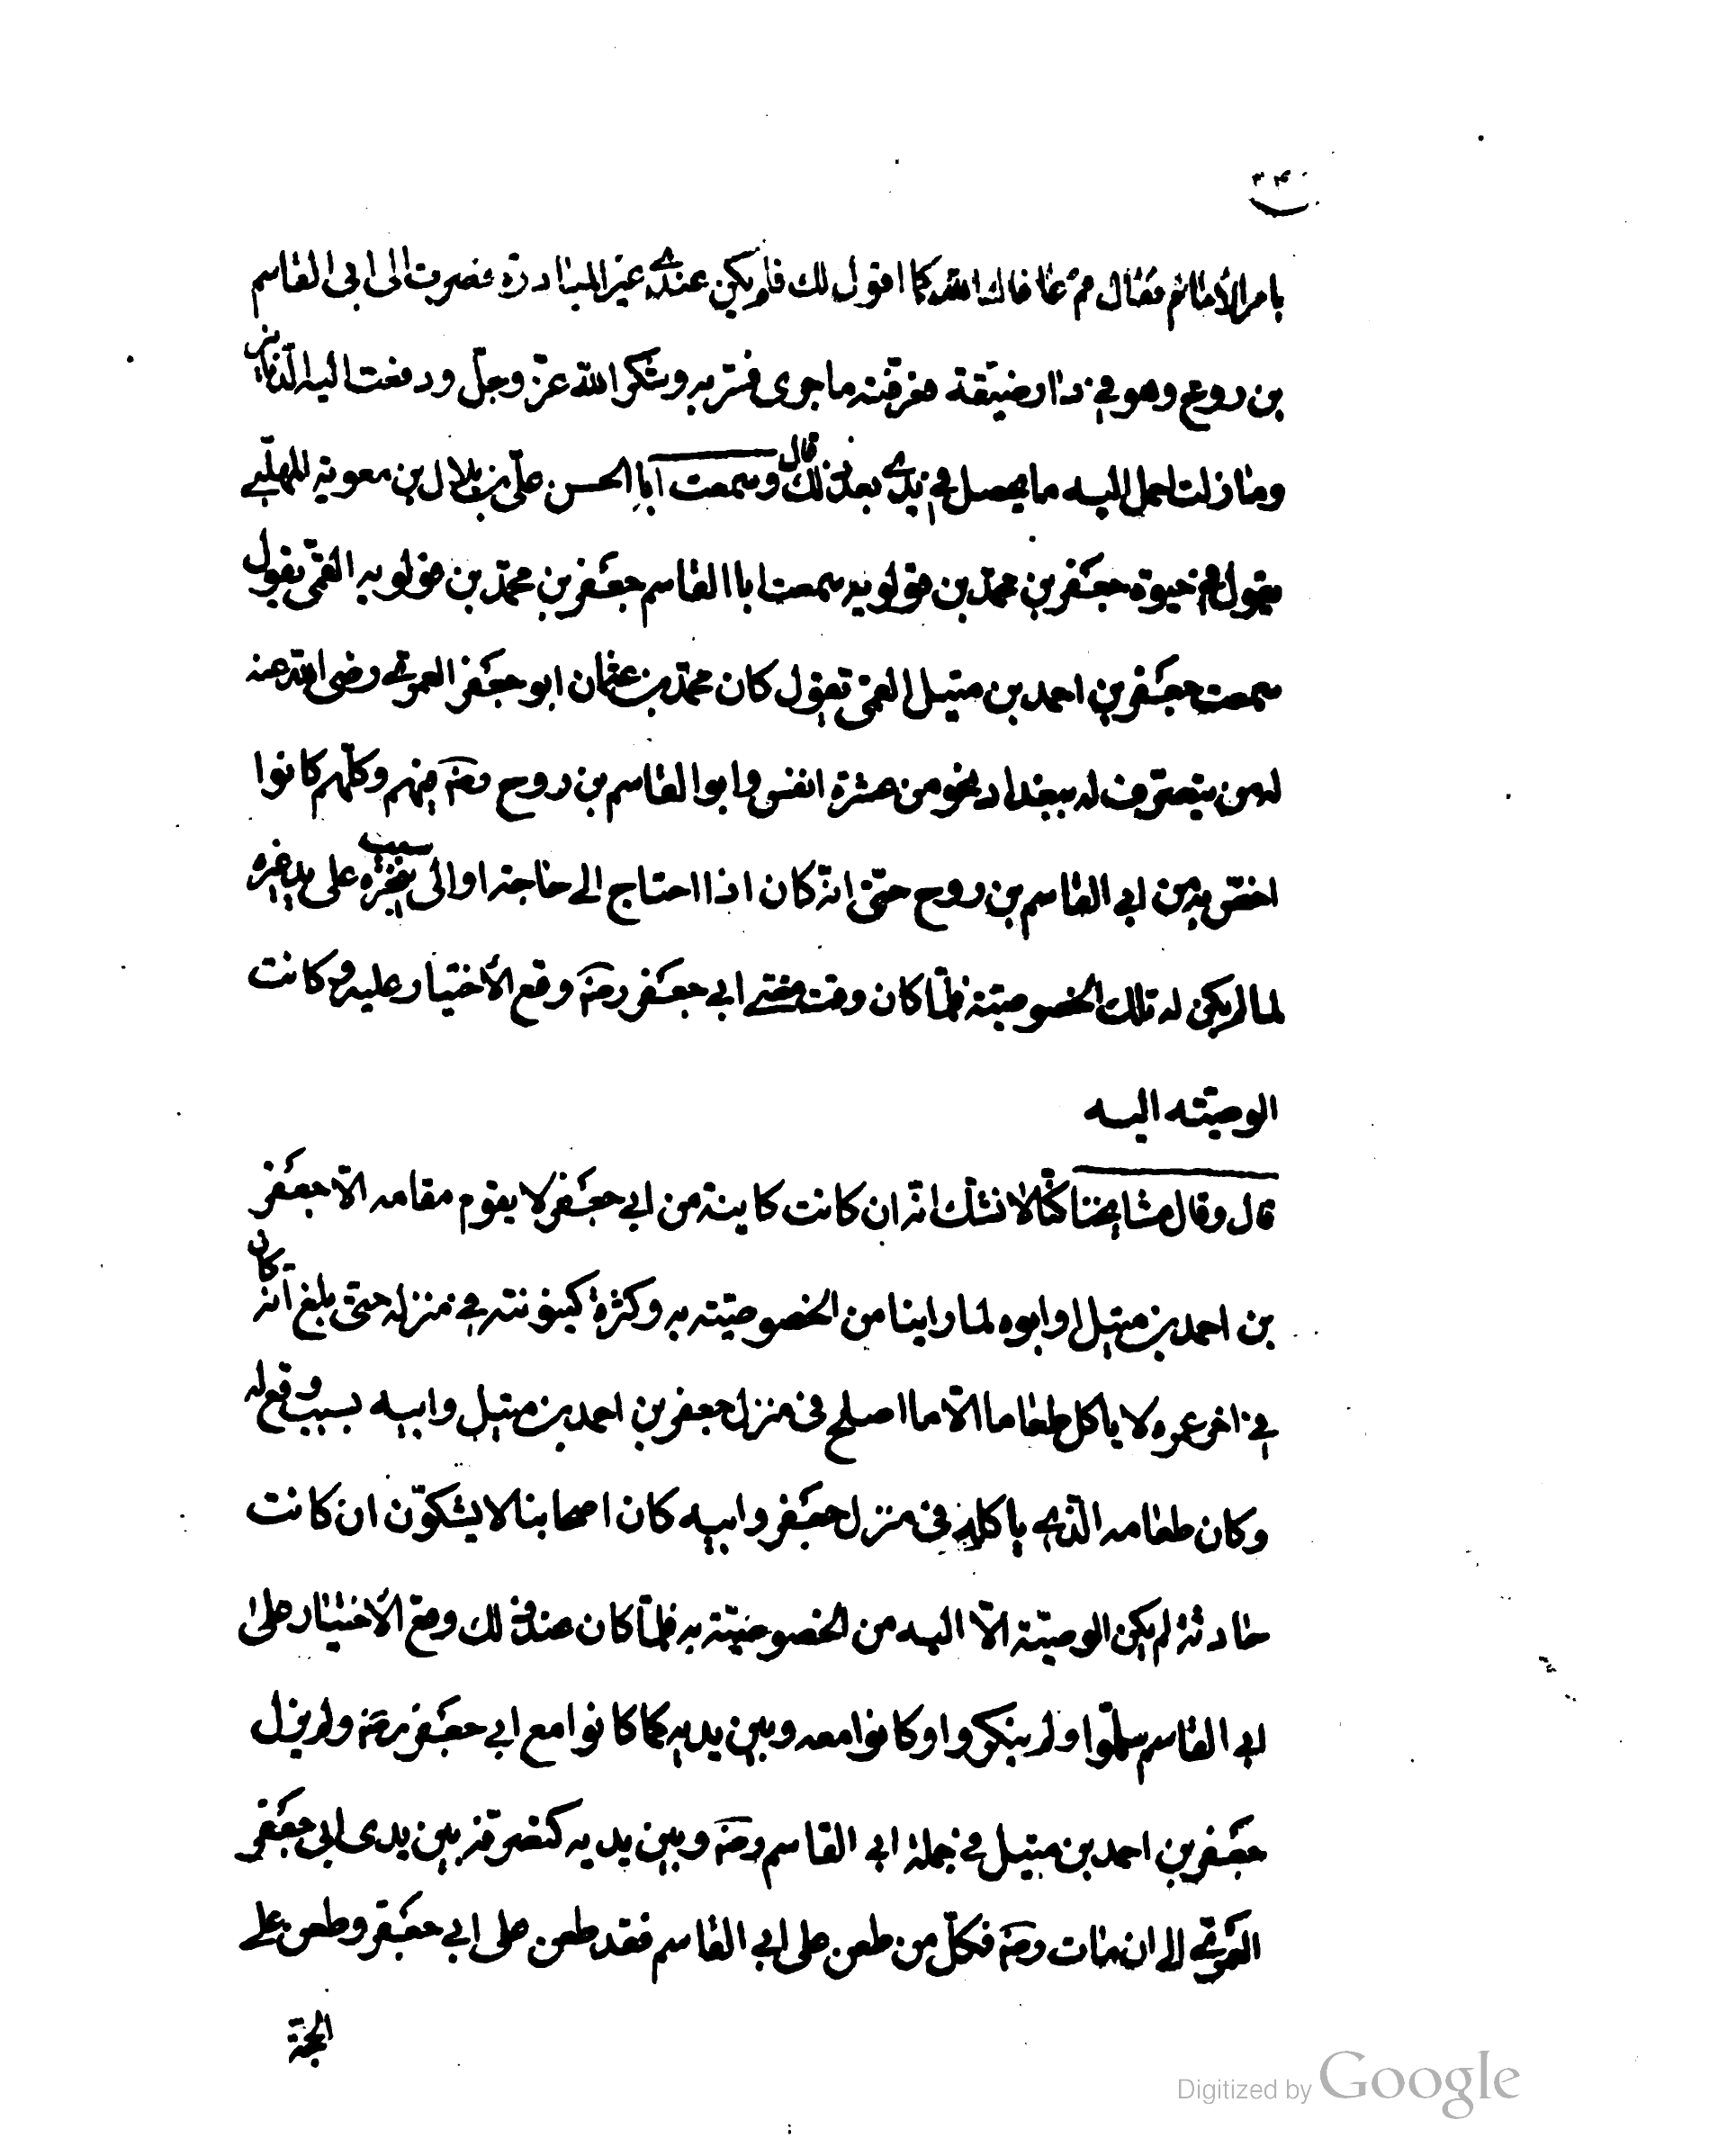 ٢٤٠
بامر الأمام ثم فقال قم عافاك الله كما اقول لك فلم يكن عندي غير المبادرة فصرت الى ابى القاسم
بن روح وهو في دار ضيقة فعرفته ما جرى فسّر به وشكر الله عزّ وجلّ ودفعت اليه الدنانير
وما زلت احمل اليه ما يحصل في يدي بعد ذلك قال وسمعت ابا الحسن علىّ بن بلال بن معوية المهلّبي
يقول في حيوة جعفر بن محمد بن قولويه سمعت ابا القاسم جعفر بن محمّد بن قولويه القمّى يقول
سمعت جعفر بن احمد بن متيل القمى يقول كان محمّد بن عثمان ابو جعفر العمرى رضى الله عنه
له من يتصرف له ببغداد نحو من عشرة انفس وابو القاسم بن روح رضه فيهم وكلّهم كانوا
اخصّ به من ابي القاسم بن روح حتّى انّه كان اذا احتاج الى حاجة او الى سبب ينجّزه على يد غيره
لما لم يكن له تلك الخصوصيّة فلمّا كان وقت مضي ابي جعفر رضه وقع الأختيار عليه وكانت
الوصيّته اليه
قال وقال مشايخنا كنّا لا نشك انّه ان كانت كاينة من ابي جعفر لا يقوم مقامه الّا جعفر
بن احمد بن متيل او ابوه لما راينا من الخصوصيّته به وكثرة كينونته في منزله حتى بلغ انّه كان
في اخر عمره لا ياكل طعاما الّا ما اصلح فى منزل جعفر بن احمد بن متيل وابيه بسبب وقع له
وكان طعامه الّذى ياكله فى منزل جعفر وابيه كان اصحابنا لا يشكوّن ان كانت
حادثة لم يكن الوصيّة الّا اليه من الخصوصيّته به فلمّا كان عند ذلك وقع الأختيار على
ابي القاسم سلّموا ولم ينكروا وكانوا معه وبين يديه كما كانوا مع ابي جعفر رضه ولم يزل
جعفر بن احمد بن متيل في جملة ابي القاسم رضه وبين يديه كتصرفه بين يدى ابى جعفر
العمرى الى ان مات رضه فكلّ من طعن على ابي القاسم فقد طعن على ابي جعفر وطعن على
الحجة
Digitized by Google